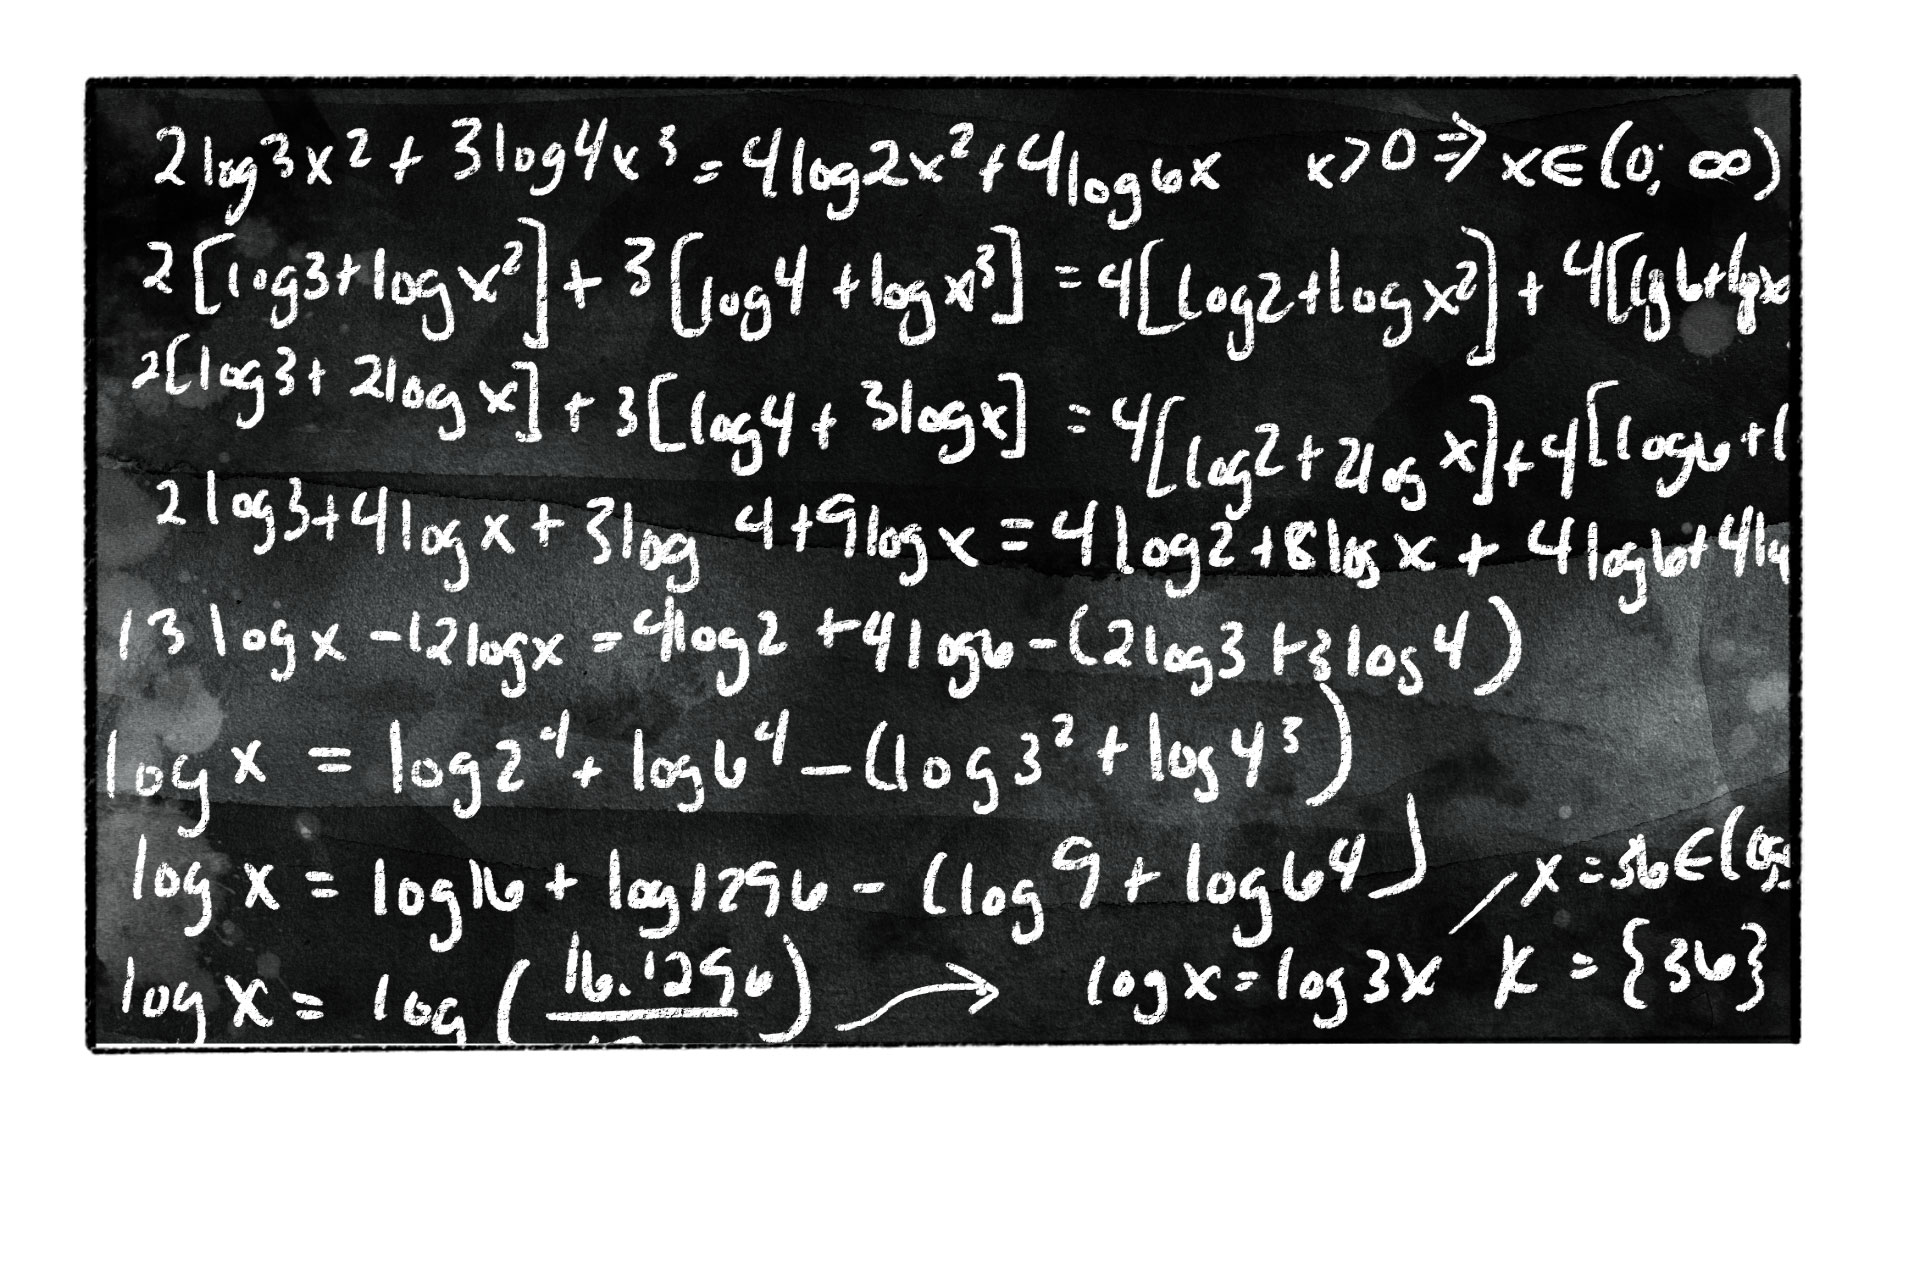 2log3x² + 3log4x³ = 4log2x² + 4log6x x>0 ⇒ x∈(0; ∞)
2[log3+logx²] + 3[log4+logx³] = 4[log2+logx²] + 4[log6+logx
2[log3+ 2logx] + 3[log4+ 3logx] = 4[log2+2logx]+4[log6+l
2log3+4logx+3log 4+9logx=4log2+8logx+4log6+4lg
13logx -12logx =4log2 +4log6-(2log3+3log4)
logx = log2⁴+ log6⁴-(log3²+log4³)
logx = log16+log1296-(log9+log64) x=36∈(
logx = log(16.1296) → logx=log3x K = {36}